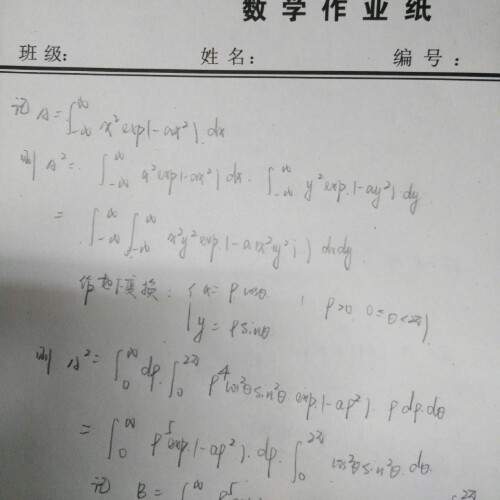 数学作业纸
班级: 姓名: 编号:
记 A=∫_{-∞}^{∞} x² exp(-ax²) dx
则 A²= ∫_{-∞}^{∞} x² exp(-ax²) dx · ∫_{-∞}^{∞} y² exp(-ay²) dy
= ∫_{-∞}^{∞} ∫_{-∞}^{∞} x²y² exp(-a(x²y²)) dxdy
作如下变换: { x = ρcosθ , ρ>0 0≤θ<2π)
y = ρsinθ
则 A²= ∫_0^∞ dρ · ∫_0^{2π} ρ⁴cos²θsin²θ exp(-aρ²) · ρ dρ dθ
= ∫_0^∞ ρ⁵ exp(-aρ²) · dρ · ∫_0^{2π} cos²θsin²θ dθ
记 B= ∫^∞ ρ⁵ 2π